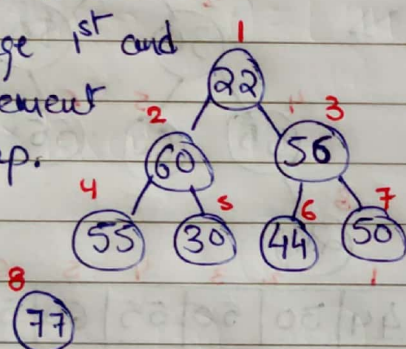 ge 1st and
ement
p.
1
22
2
3
60
56
4
5
6
7
55
30
44
50
8
77